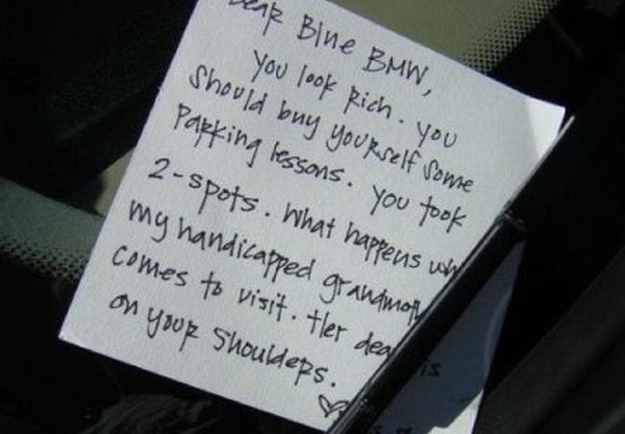 Dear Blue BMW,
You look Rich. You
should buy yourself some
Parking lessons. You took
2-spots. What happens
my handicapped
comes to visit. Her
on your shoulders.
is